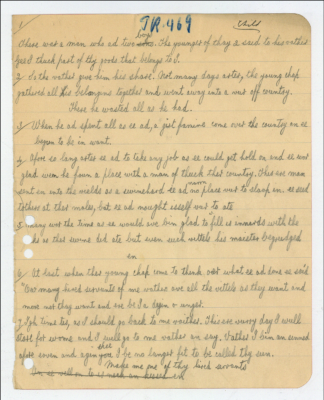 TR.469
child
boys
There was a man who ad two sons. The younger of they & said to his vather
gee I thuck part of thy goods that belongs to I.
2. So the vather give him his share. Not many days arter, the young chap
gathered all his belongins together and went away into a vur off country.
There he wasted all as he had.
When he ad spent all as ee ad, a girt famine come over the country an ee
begun to be in want.
4. Afore so long arter ee ad to take any job as ee could get hold on and ee wur
glad wen he foun a place with a man of thuck that country. This ere man
sent en into the vields as a swineherd
t'other at this maks, but ee ad nought isself vur to ate
5. many wur the time as ee would uv bin glad to fill is innards with the
as this swine did ate but even such vittels his maister begrudged
en
6. At last when this young chap come to think over what ee ad done ee said
"Our many hired servants of me vather ave all the vittels as they want and
more nor they want and ere be I a dyen o unger.
7. Igh time tis, as I should go back to me vather. This ere very day I will
start for wome and I will go to me vather an say, Vather I bin an sinned
agenst heven and agen you I be no longer fit to be called thy son.
Make me one of thy hired servants